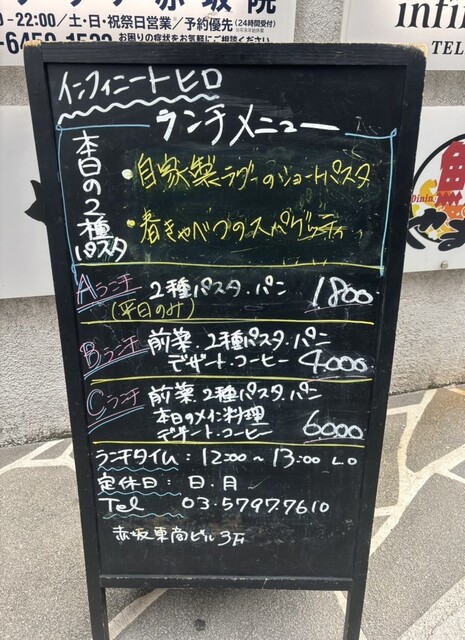 院
-22:00/土・日・祝祭日営業/予約優先(24時間受付)
お困りの症状をお気軽にご相談ください
infin
TEL
Dinin
インフィニートヒロ
ランチメニュー
本日の2種パスタ
・自家製ラグーのショートパスタ
・春きゃべつのスパゲッティ
Aランチ 2種パスタ・パン 1800
(平日のみ)
Bランチ 前菜・2種パスタ・パン
デザート・コーヒー 4000
Cランチ 前菜・2種パスタ・パン
本日のメイン料理
デザート・コーヒー 6000
ランチタイム:12:00~13:00 LO
定休日:日・月
Tel 03.5797.7610
赤坂東商ビル3F